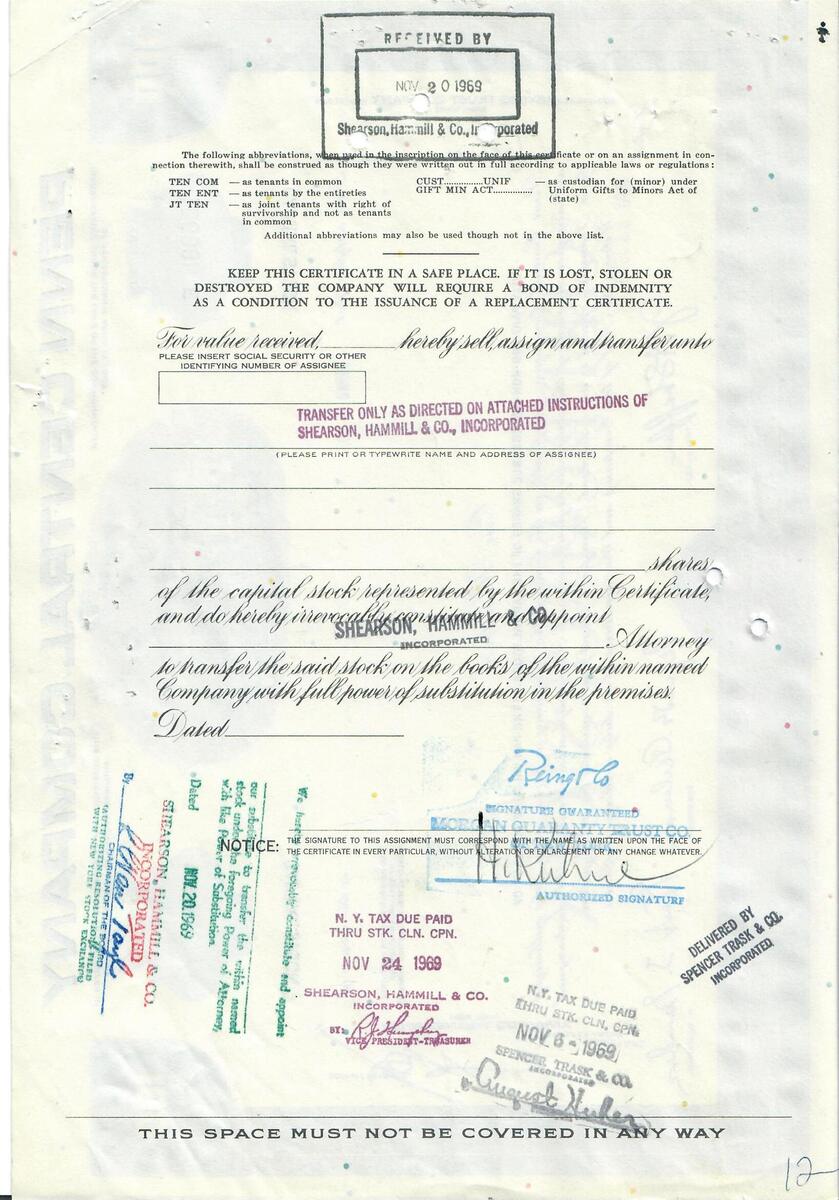 RECEIVED BY
NOV 20 1969
Shearson, Hammill & Co., Incorporated
The following abbreviations, when used in the inscription on the face of this certificate or on an assignment in con-
nection therewith, shall be construed as though they were written out in full according to applicable laws or regulations:
TEN COM — as tenants in common
TEN ENT — as tenants by the entireties
JT TEN — as joint tenants with right of
survivorship and not as tenants
in common
CUST..............UNIF — as custodian for (minor) under
GIFT MIN ACT.............. Uniform Gifts to Minors Act of
(state)
Additional abbreviations may also be used though not in the above list.
KEEP THIS CERTIFICATE IN A SAFE PLACE. IF IT IS LOST, STOLEN OR
DESTROYED THE COMPANY WILL REQUIRE A BOND OF INDEMNITY
AS A CONDITION TO THE ISSUANCE OF A REPLACEMENT CERTIFICATE.
For value received, hereby sell, assign and transfer unto
PLEASE INSERT SOCIAL SECURITY OR OTHER
IDENTIFYING NUMBER OF ASSIGNEE
TRANSFER ONLY AS DIRECTED ON ATTACHED INSTRUCTIONS OF
SHEARSON, HAMMILL & CO., INCORPORATED
(PLEASE PRINT OR TYPEWRITE NAME AND ADDRESS OF ASSIGNEE)
shares
of the capital stock represented by the within Certificate,
and do hereby irrevocably constitute and appoint
SHEARSON, HAMMILL & CO.
INCORPORATED
Attorney
to transfer the said stock on the books of the within named
Company with full power of substitution in the premises.
Dated
SIGNATURE GUARANTEED
MORGAN GUARANTY TRUST CO.
NOTICE: THE SIGNATURE TO THIS ASSIGNMENT MUST CORRESPOND WITH THE NAME AS WRITTEN UPON THE FACE OF
THE CERTIFICATE IN EVERY PARTICULAR, WITHOUT ALTERATION OR ENLARGEMENT OR ANY CHANGE WHATEVER.
AUTHORIZED SIGNATURE
We hereby irrevocably constitute and appoint
our substitute to transfer the within named
stock under the foregoing Power of Attorney,
with like Power of Substitution.
Dated NOV. 20 1969
SHEARSON, HAMMILL & CO.
INCORPORATED
By
CHAIRMAN OF THE BOARD
(AUTHORIZING RESOLUTION FILED
WITH NEW YORK STOCK EXCHANGE)
N. Y. TAX DUE PAID
THRU STK. CLN. CPN.
NOV 24 1969
SHEARSON, HAMMILL & CO.
INCORPORATED
BY:
VICE PRESIDENT-TREASURER
N.Y. TAX DUE PAID
THRU STK. CLN. CPN.
NOV 6 - 1969
SPENCER TRASK & CO.
INCORPORATED
DELIVERED BY
SPENCER TRASK & CO.
INCORPORATED
THIS SPACE MUST NOT BE COVERED IN ANY WAY
12